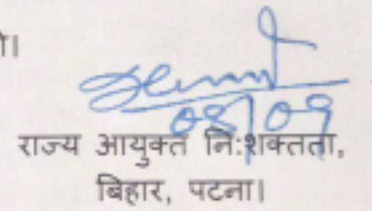 ो।
08/09
राज्य आयुक्त निःशक्तता,
बिहार, पटना।